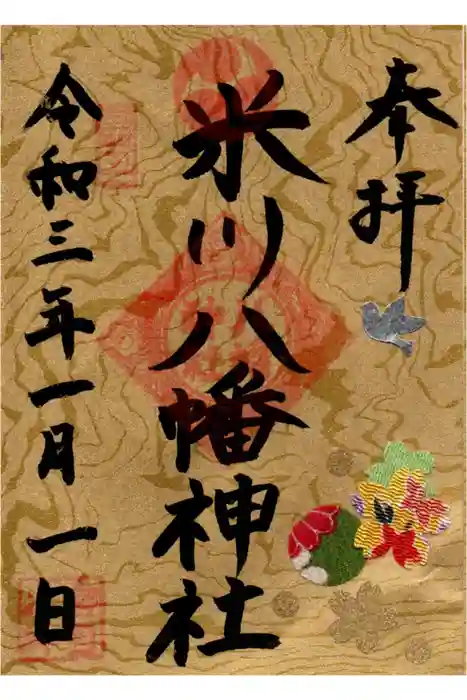 奉拝
氷川八幡神社
令和三年一月一日